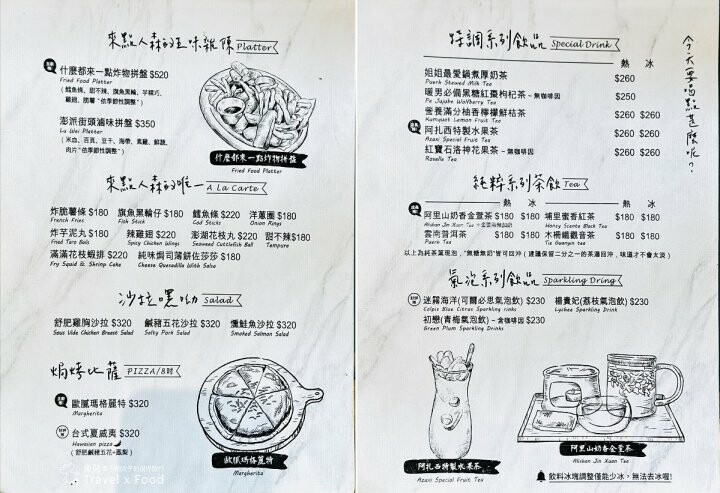 來點人森的五味雜陳 Platter
什麼都來一點炸物拼盤 $520
Fried Food Platter
(鱈魚條、甜不辣、旗魚黑輪、芋模巧、
雞翅、脆薯 "依季節性調整")
澎派街頭滷味拼盤 $350
Lu Wei Platter
(米血、百頁、豆干、海帶、素雞、鮮蔬、
肉片 "依季節性調整")
什麼都來一點炸物拼盤
Fried Food Platter
來點人森的唯一 A La Carte
炸脆薯條 $180 旗魚黑輪仔 $180 鱈魚條 $220 洋蔥圈 $180
French Fries Fish Stick Cod Sticks Onion Rings
炸芋泥丸 $180 辣雞翅 $220 澎湖花枝丸 $220 甜不辣$180
Fried Taro Balls Spicy Chicken Wings Seaweed Cuttlefish Ball Tempura
滿滿花枝蝦排 $220 純味焗司薄餅佐莎莎 $180
Fry Squid & Shrimp Cake Cheese Quesadilla With Salsa
沙拉嘿呦 Salad
舒肥雞胸沙拉 $320 鹹豬五花沙拉 $320 燻鮭魚沙拉 $320
Sous Vide Chicken Breast Salad Salty Pork Salad Smoked Salmon Salad
焗烤比薩 PIZZA/8吋
歐膩瑪格麗特 $320
Margherita
台式夏威夷 $320
Hawaiian pizza
(舒肥鹹豬五花+鳳梨)
歐膩瑪格麗特
Margherita
Travel x Food
特調系列飲品 Special Drink
今天要喝點甚麼呢?
熱 冰
姐姐最愛鍋煮厚奶茶 $260
Puerh Stewed Milk Tea
暖男必備黑糖紅棗枸杞茶~無咖啡因 $250
Pe Jujube Wolfberry Tea
營養滿分柚香檸檬鮮桔茶 $260 $260
Kumquat Lemon Fruit Tea
阿扎西特製水果茶 $260 $260
Azasi Special Fruit Tea
紅寶石洛神花果茶~無咖啡因 $260 $260
Roselle Tea
純粹系列茶飲 Tea
熱 冰 熱 冰
阿里山奶香金萱茶 $180 $180 埔里蜜香紅茶 $180 $180
Alishan Jin Xuan Tea Honey Scente Black Tea
雲南普洱茶 $180 $180 木柵鐵觀音茶 $180 $180
Puerh Tea Tie Guanyin tea
以上為純茶葉現泡，"無糖無奶"皆可回沖 (建議保留二分之一的茶湯回沖，味道才不會太淡)
氣泡系列飲品 Sparkling Dring
迷霧海洋(可爾必思氣泡飲) $230 楊貴妃(荔枝氣泡飲) $230
Calpis Blue Citrus Sparkling rinks Lychee Sparkling Drinks
初戀(青梅氣泡飲)~含咖啡因 $230
Green Plum Sparkling Drinks
阿扎西特製水果茶
Azasi Special Fruit Tea
阿里山奶香金萱茶
Alishan Jin Xuan Tea
飲料冰塊調整僅能少冰，無法去冰喔!